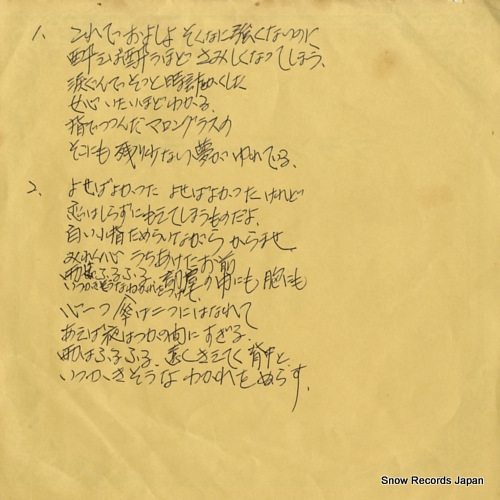 1. これでおよしよ そんなに強くないのに
酔えば酔うほど さみしくなってしまう、
涙ぐんで そっと時計をかくした
せじいたいほどわかる、
指でつつんだマロングラスの
そこにも残り少ない夢がゆれてる、
2. よせばよかった よせばよかったけれど
恋はしらずにもえてしまうものだよ、
白い小指ためらいながら からませ
みれん心 うちあけたお前
雨はふるふる の中にも 胸にも
いつかきそうなわかれを
心一つ 傘は二つにはなれて
あえば夜はつかの間にすぎる、
雨はふるふる、遠くきえてく背中を、
いつか、きそうな わかれをぬらす、
Snow Records Japan